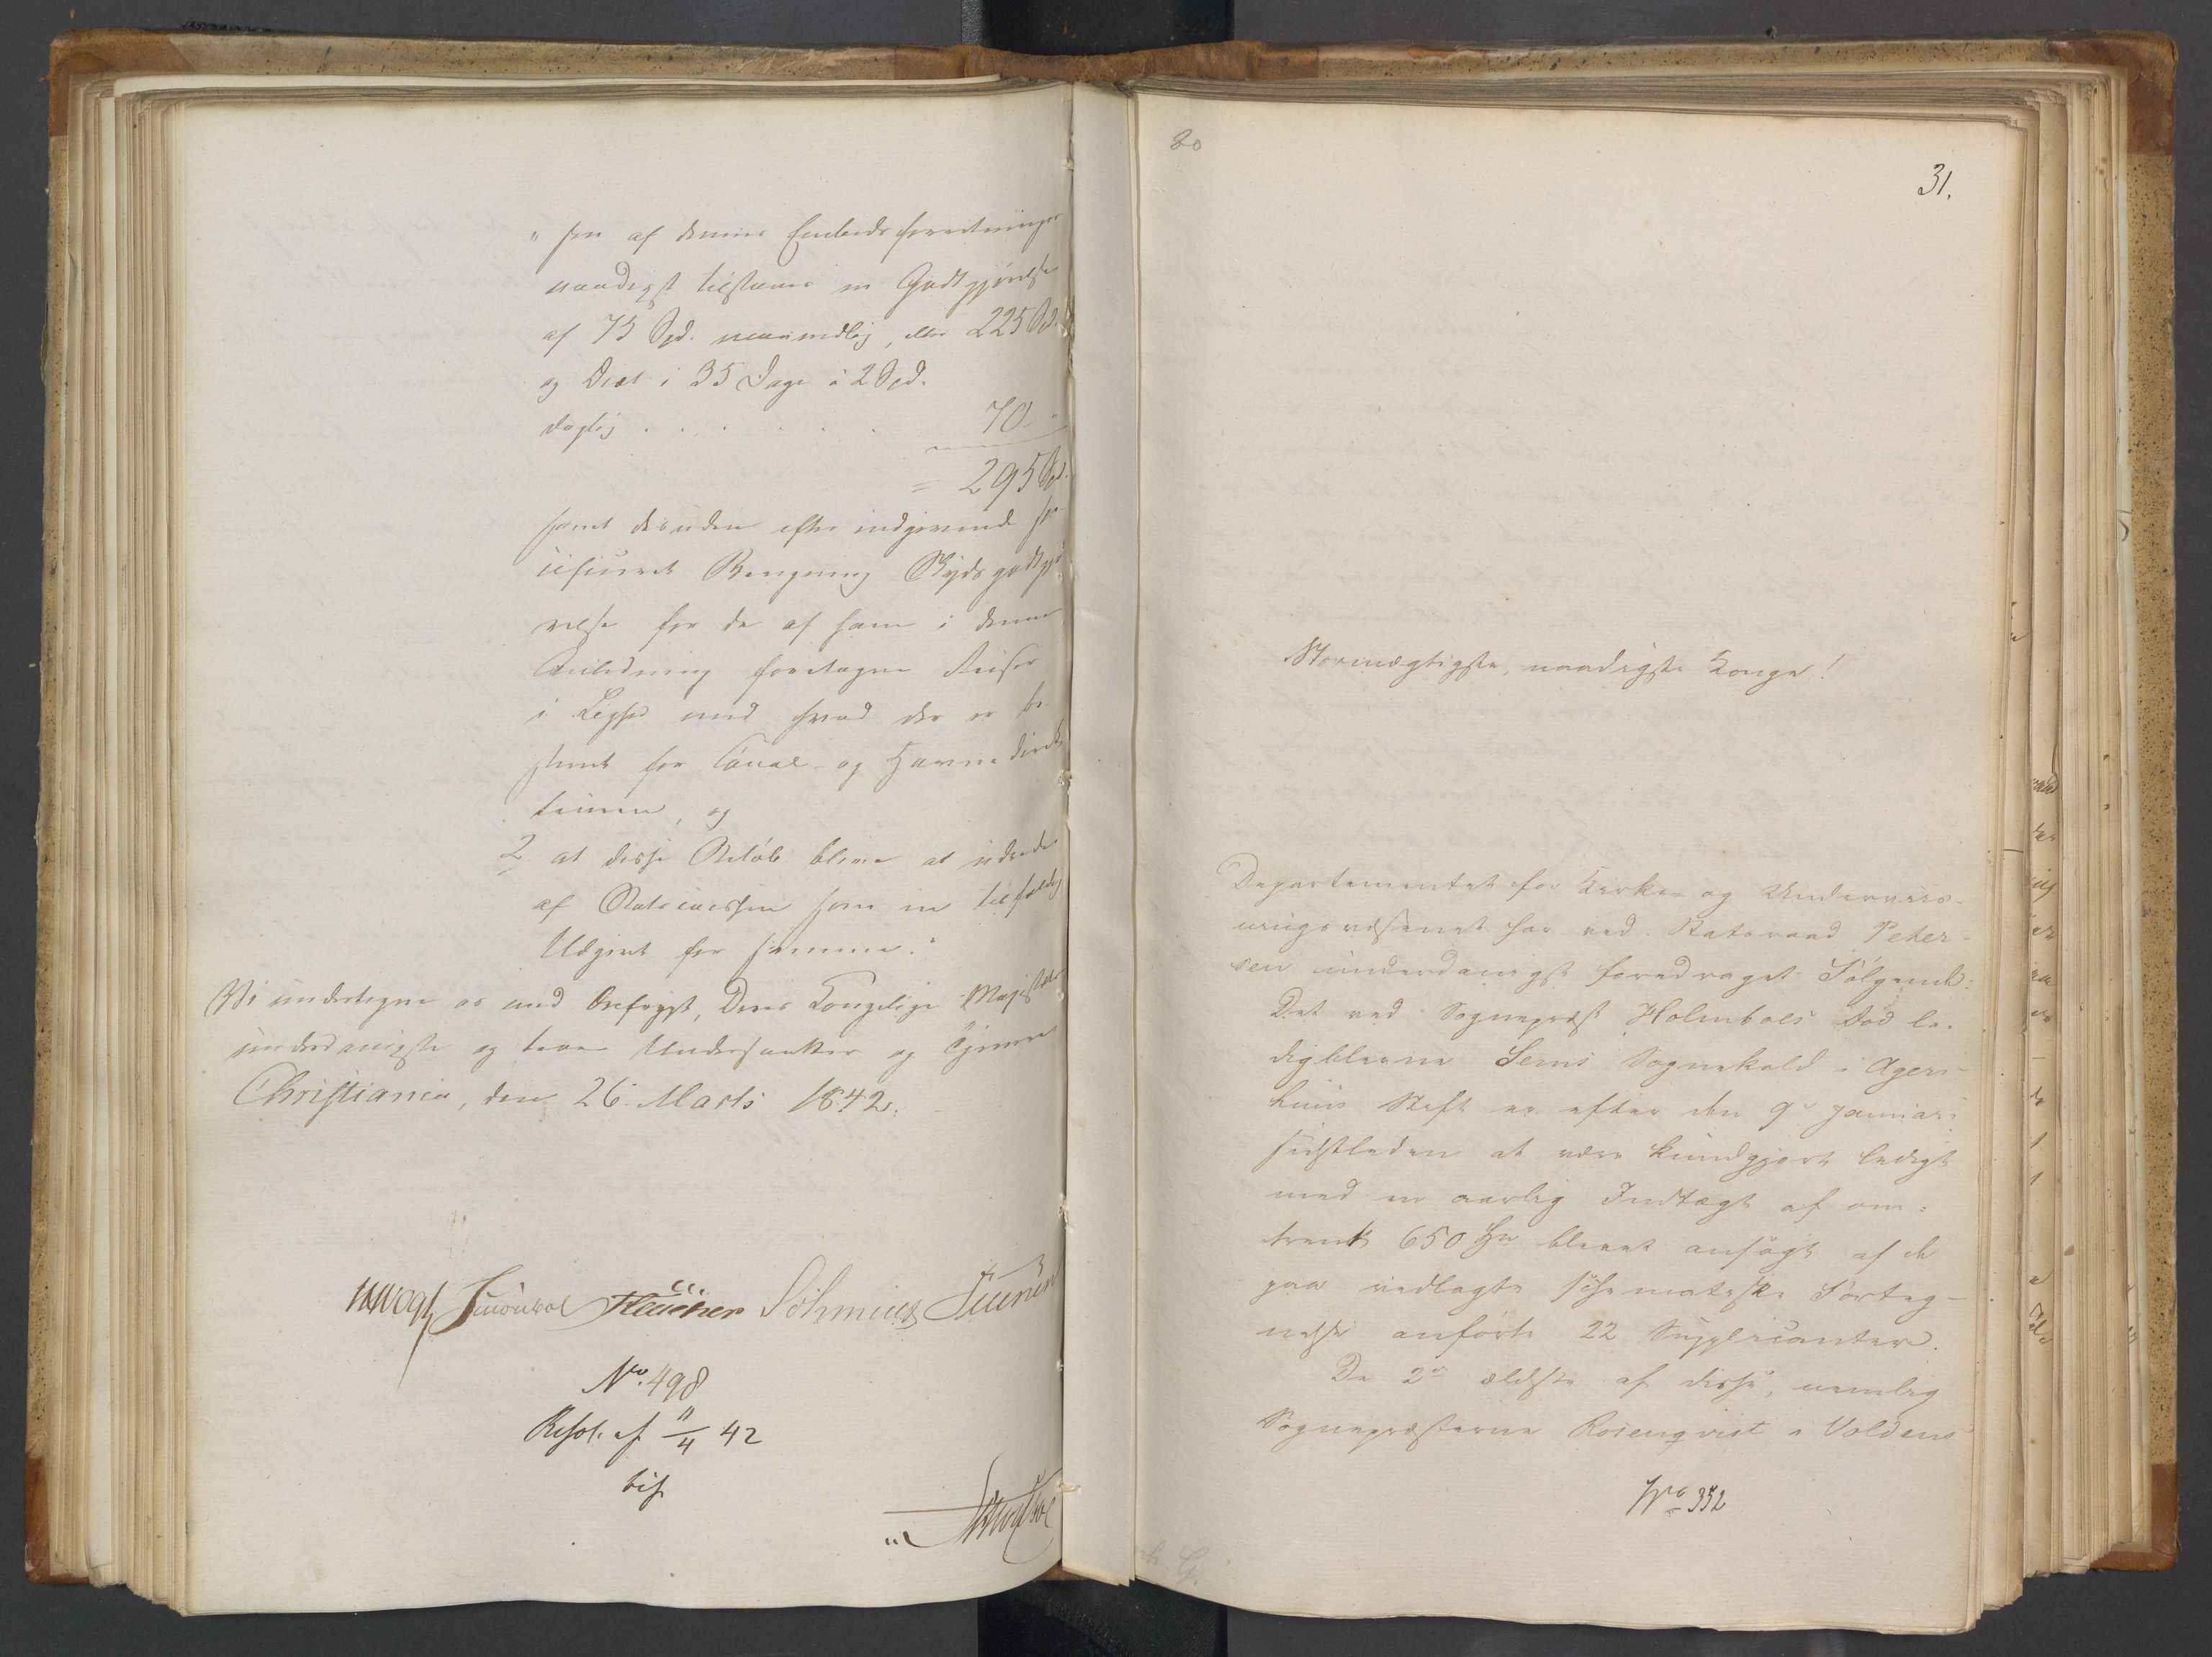 " sen af denne Embedsforretninger
naadigst tilstaaes en Godtgjørelse
af 75 Spd. maanedlig, eller 225 Spd.
og Diæt i 35 Dage á 2 Spd.
daglig . . . . . . . 70 "
= 295 Spd.
samt desuden efter indgivende spe-
cificeret Beregning Skydsgodtgjø-
relse for de af ham i denne
Anledning foretagne Reiser
i Lighed med hvad der er be-
stemt for Canal- og Havnedirek-
teuren, og
2 at disse Beløb blive at udrede
af Statscassen som en tilfældig
Udgivt for samme."
Vi undertegne os med Ærefrygt, Deres Kongelige Majestæts
underdanigste og troe Undersaatter og Tjenere
Christiania, den 26. Marts 1842.
No. 498
Resol. af 11/4 42
bif
30
31.
Stormægtigste, naadigste Konge!
Departementet for Kirke- og Underviis-
ningsvæsenet har ved Statsraad Peter-
sen underdanigst foredraget Følgende:
Det ved Sognepræst Holmboes Død le-
digblevne Sems Sognekald i Agers-
huus Stift er efter den 9de Januar
sidstleden at være kundgjort ledigt
med en aarlig Indtægt af om-
trent 650 Spd. blevet ansøgt af de
paa vedlagte schematiske Forteg-
nelse anførte 22 Supplicanter.
De 2de ældste af disse, nemlig
Sognepræsterne Rosenqvist i Voldens
No 352